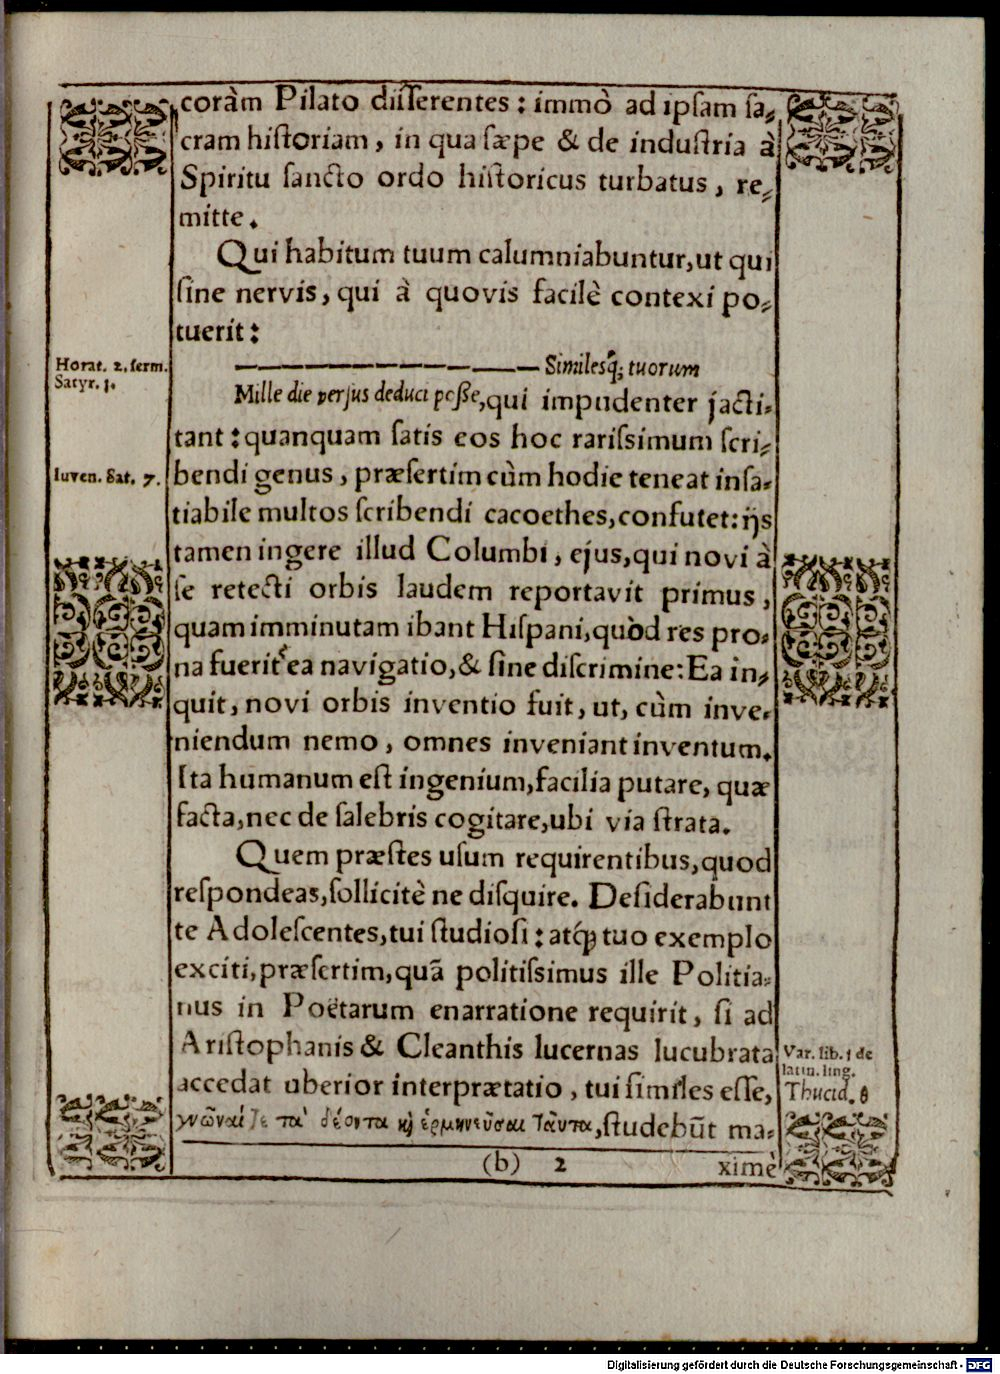 coràm Pilato disserentes: immò ad ipsam sa-
cram historiam, in qua sæpe & de industria à
Spiritu sancto ordo historicus turbatus, re-
mitte.
Qui habitum tuum calumniabuntur, ut qui
sine nervis, qui à quovis facilè contexi po-
tuerit:
Horat. 2. serm.
Satyr. 1.
— — — — — — — — — — Similesq; tuorum
Mille die versus deduci posse, qui impudenter jacti-
tant: quanquam satis eos hoc rarissimum scri-
Iuven. Sat. 7.
bendi genus, præsertim cùm hodie teneat insa-
tiabile multos scribendi cacoethes, confutet: ijs
tamen ingere illud Columbi, ejus, qui novi à
se retecti orbis laudem reportavit primus,
quam imminutam ibant Hispani, quòd res pro-
na fuerit ea navigatio, & sine discrimine: Ea in-
quit, novi orbis inventio fuit, ut, cùm inve-
niendum nemo, omnes inveniant inventum.
Ita humanum est ingenium, facilia putare, quæ
facta, nec de salebris cogitare, ubi via strata.
Quem præstes usum requirentibus, quod
respondeas, sollicitè ne disquire. Desiderabunt
te Adolescentes, tui studiosi: atq; tuo exemplo
exciti, præsertim, quā politissimus ille Politia-
nus in Poëtarum enarratione requirit, si ad
Aristophanis & Cleanthis lucernas lucubrata
accedat uberior interprætatio, tui similes esse,
Var. lib. 1 de
latin. ling.
Thucid. β
γνῶναί τε τὰ δέοντα κὶ ἑρμηνεῦσαι ταῦτα, studebūt ma-
(b) 2 ximè
Digitalisierung gefördert durch die Deutsche Forschungsgemeinschaft - DFG